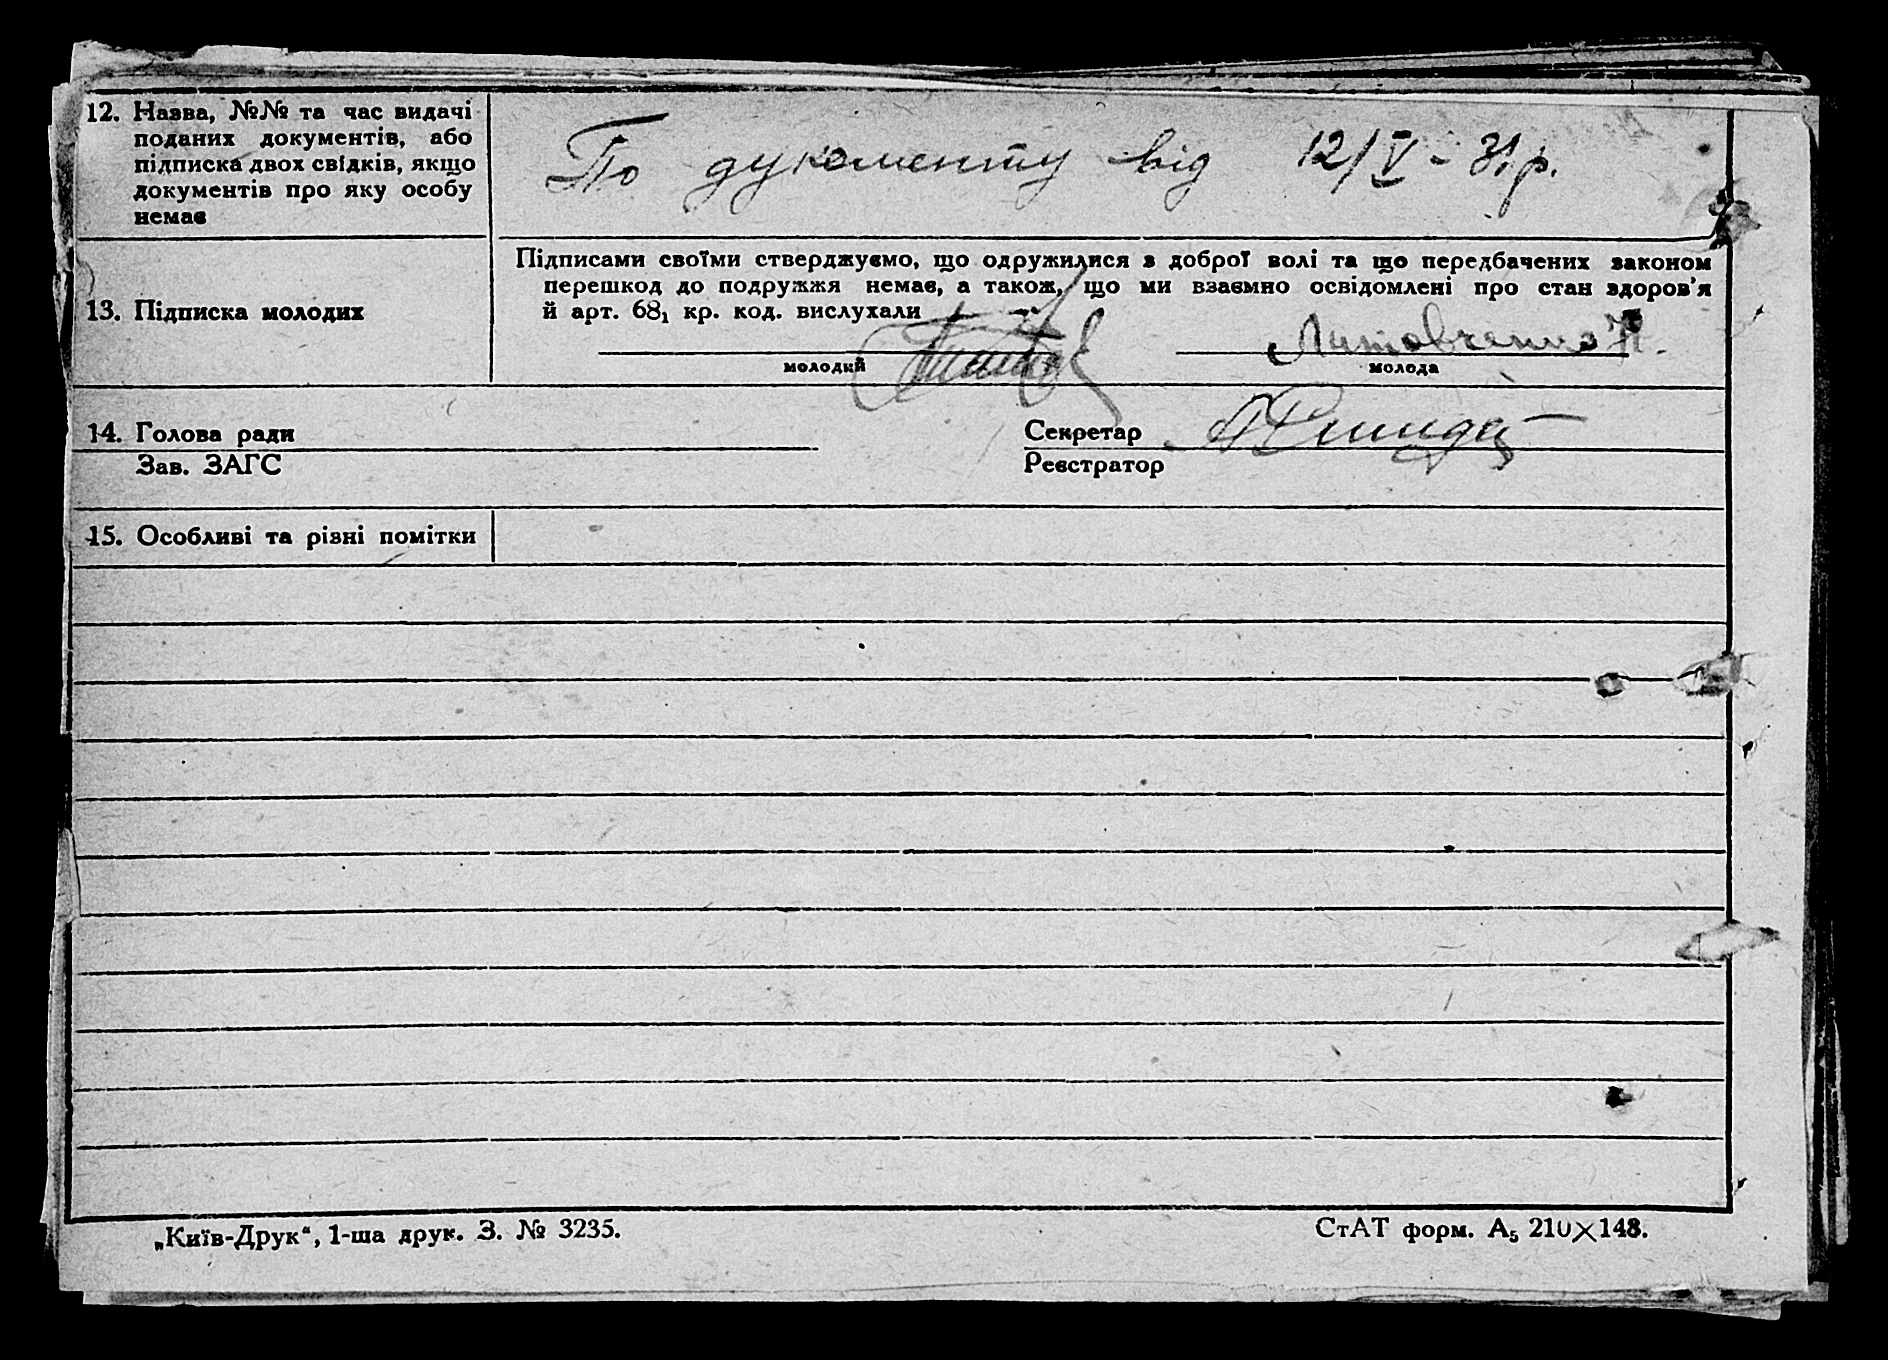 12. Назва, №№ та час видачі
поданих документів, або
підписка двох свідків, якщо
документів про яку особу
немає
По дукоменту від 12/V - 31 р.
13. Підписка молодих
Підписами своїми стверджуємо, що одружилися з доброї волі та що передбачених законом
перешкод до подружжя немає, а також, що ми взаємно освідомлені про стан здоров'я
й арт. 68₁ кр. код. вислухали
Литовченко Н.
молодий молода
14. Голова ради Секретар
Зав. ЗАГС Реєстратор
15. Особливі та різні помітки
„Київ-Друк“, 1-ша друк. З. № 3235. СтАТ форм. А₅ 210×148.